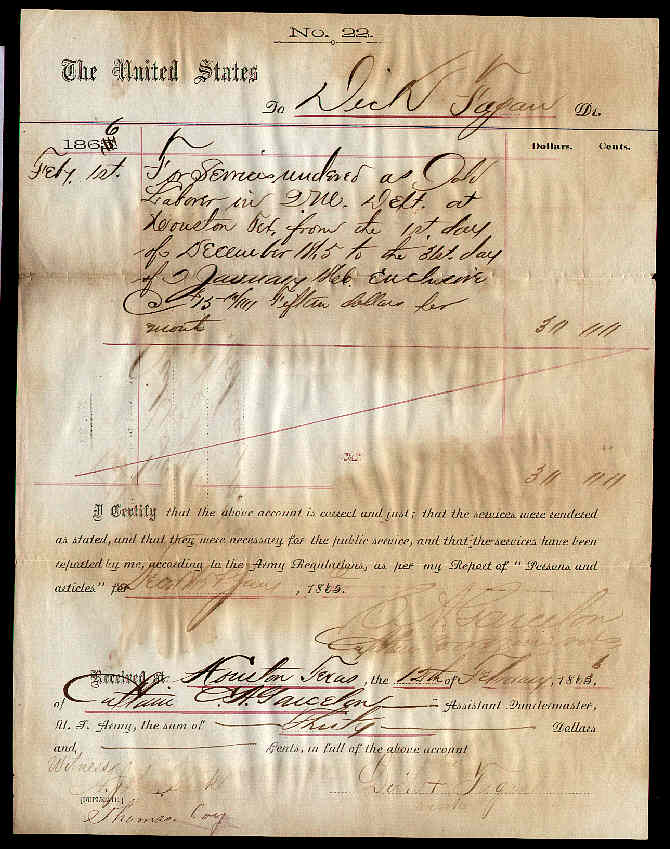 No. 22.
The United States
To Dick Fagan Dr.
1866 Dollars. Cents.
Feby. 1st. For Services rendered as
Laborer in Q.M. Dept. at
Houston Tex. from the 1st. day
of December 1865 to the 31st. day
of January 1866 inclusive
@ $15 00/100 Fifteen dollars per
month 30 00
30 00
I Certify that the above account is correct and just; that the services were rendered
as stated, and that they were necessary for the public service, and that the services have been
reported by me, according to the Army Regulations, as per my Report of "Persons and
articles" for , 186 .
Received at Houston Texas, the 12th of February, 1866,
of Captain Assistant Quartermaster,
U. S. Army, the sum of Thirty Dollars
and, Cents, in full of the above account
Witness
Dick + Fagan
mark
[DUPLICATE.]
Thomas